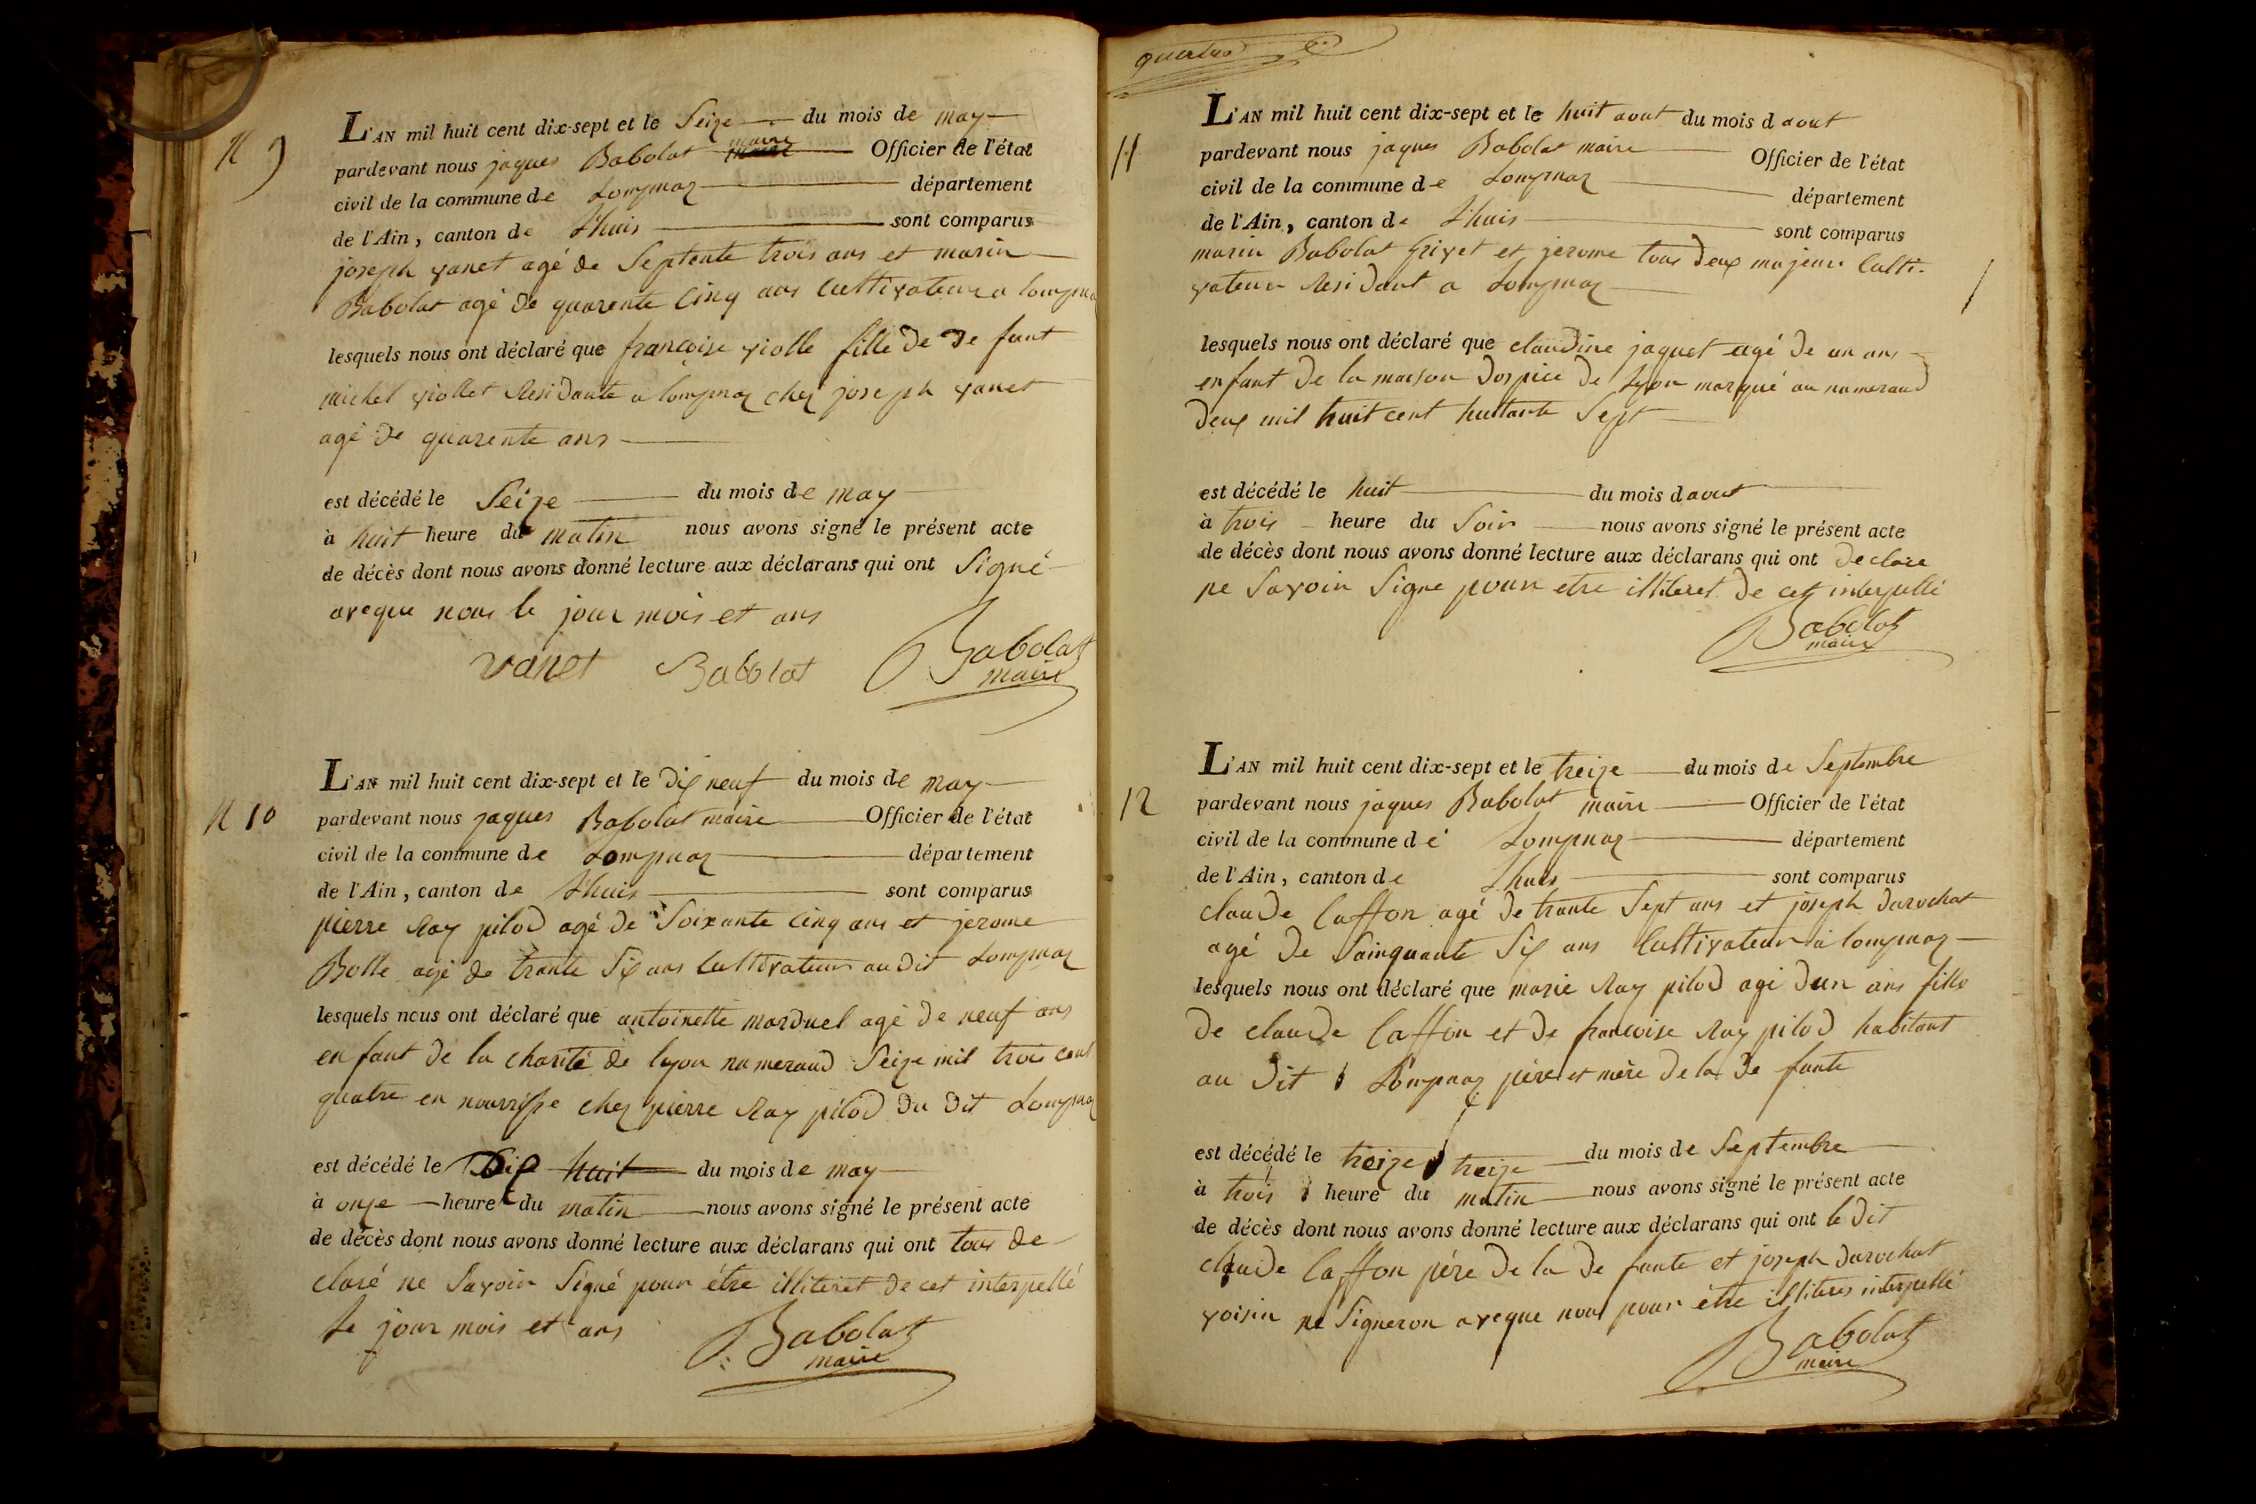 N 9
L'AN mil huit cent dix-sept et le Seize du mois de may
pardevant nous jaques Babolat maire Officier de l'état
civil de la commune de Lompnaz département
de l'Ain, canton de Lhuis sont comparus
joseph vanet agé de Septente trois ans et marin
Babolat agé de quarente cinq ans cultivateur a lompnaz
lesquels nous ont déclaré que francoise violle fille de de funt
michel viollet Residante a lompnaz chez joseph vanet
agé de quarente ans
est décédé le Seize du mois de may
à huit heure du matin nous avons signé le présent acte
de décès dont nous avons donné lecture aux déclarans qui ont Signé
aveque nous le jour mois et ans
vanet Babolat Babolat
maire
N 10
L'AN mil huit cent dix-sept et le dix neuf du mois de may
pardevant nous jaques Babolat maire Officier de l'état
civil de la commune de Lompnaz département
de l'Ain, canton de Lhuis sont comparus
pierre Ray pilod agé de Soixante cinq ans et jerome
Bolle agé de trante Six ans Cultivateur au dit Lompnaz
lesquels nous ont déclaré que antoinette marduel agé de neuf ans
enfant de la charité de lyon numeraud Seize mil trois cent
quatre en nourrisse chez pierre Ray pilod du dit Lompnaz
est décédé le Dix huit du mois de may
à onze heure du matin nous avons signé le présent acte
de décès dont nous avons donné lecture aux déclarans qui ont tous de
claré ne Savoir Signé pour étre illiteret de cet interpellé
le jour mois et ans Babolat
maire
quatre
11
L'AN mil huit cent dix-sept et le huit aout du mois d aout
pardevant nous jaques Babolat maire Officier de l'état
civil de la commune de Lompnaz département
de l'Ain, canton de Lhuis sont comparus
marin Babolat Grivet et jerome tous deux majeur Culti-
vateur Residant a Lompnaz
lesquels nous ont déclaré que claudine jaquet agé de un ans
enfant de la maison dospice de Lyon marqué au numeraud
deux mil huit cent huitante Sept
est décédé le huit du mois d aout
à trois heure du Soir nous avons signé le présent acte
de décès dont nous avons donné lecture aux déclarans qui ont declare
ne Savoir Signe pour etre illiteret de cet interpellé
Babolat
maire
12
L'AN mil huit cent dix-sept et le treize du mois de Septembre
pardevant nous jaques Babolat maire Officier de l'état
civil de la commune de Lompnaz département
de l'Ain, canton de Lhuis sont comparus
claude Caffon agé de trante Sept ans et joseph darochat
agé de Sainquante Six ans Cultivateur à lompnaz
lesquels nous ont déclaré que marie Ray pilod agé dun ans fille
de claude Caffon et de francoise Ray pilod habitant
au dit Lompnaz père et mère de la de funte
est décédé le treize treize du mois de Septembre
à trois heure du matin nous avons signé le présent acte
de décès dont nous avons donné lecture aux déclarans qui ont le dit
claude Caffon pére de la de funte et joseph darochat
voisin ne Signeron aveque nous pour etre illiteres interpellé
Babolat
maire